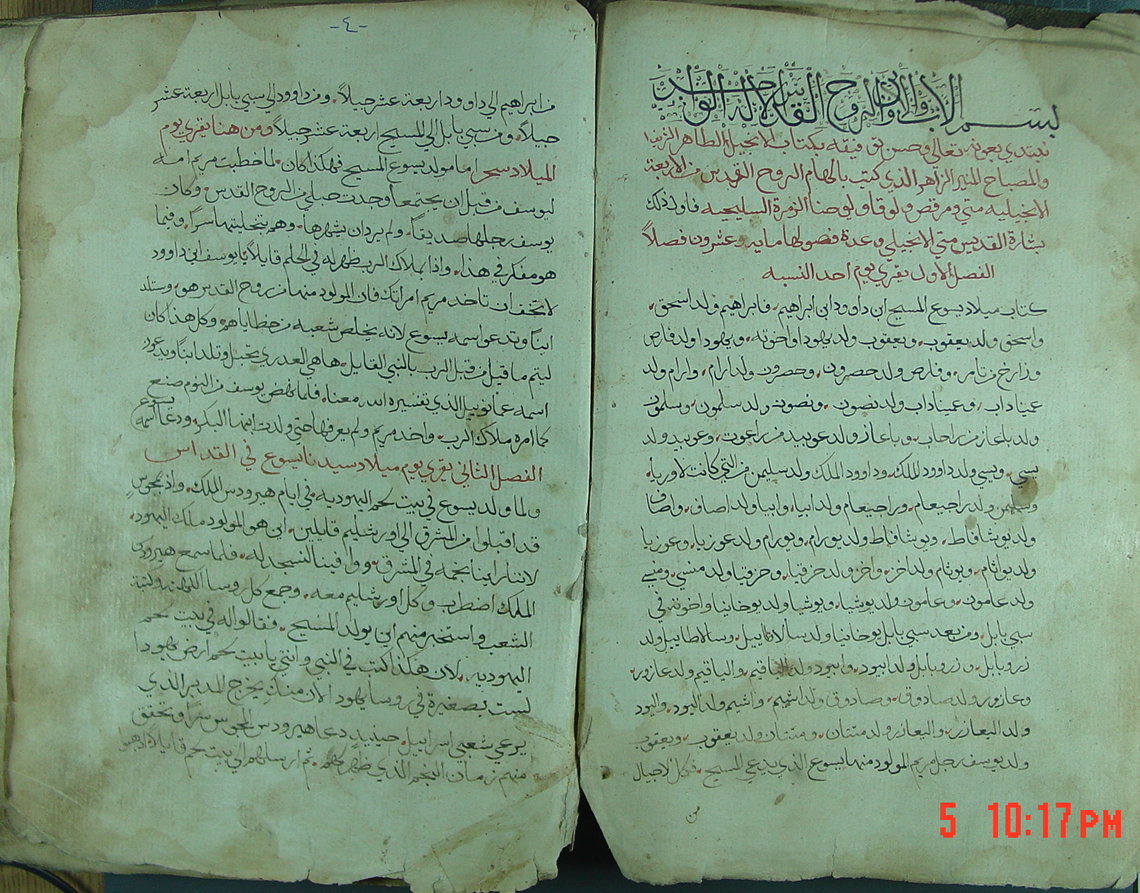 بسم الاب والابن والروح القدس الاله الواحد
نبتدي بعونه تعالى وحسن توفيقه بكتاب الانجيل الطاهر
والمصباح المنير الزاهر الذي كتب بالهام الروح القدس من الاربعة
الانجيليه متي ومرقص ولوقا ويوحنا الزمرة السليحيه فاول ذلك
بشارة القديس متى الانجيلي وعدة فصولها مايه وعشرون فصلاً
الفصل الاول يقري يوم احد النسبه
كتاب ميلاد يسوع المسيح ابن داوود ابن ابراهيم. فابراهيم ولد اسحق.
واسحق ولد يعقوب. ويعقوب ولد يهودا واخوته. ويهودا ولد فارص
وزارح من تامر. وفارص ولد حصرون. وحصرون ولد ارام. وارام ولد
عميناداب. وعميناداب ولد نصون. ونصون ولد سلمون. وسلمون
ولد باعاز من راحاب. وباعاز ولد عوبيد من راعوت. وعوبيد ولد
يسي. ويسي ولد داوود الملك. وداوود الملك ولد سليمن من التي كانت لاوريا.
وسليمن ولد راحبعام. وراحبعام ولد ابيا. وابيا ولد اصاف. واصاف
ولد يوشافاط. ويوشافاط ولد يورام. ويورام ولد عوزيا. وعوزيا
ولد يواتام. ويوتام ولد احز. واحز ولد حزقيا. وحزقيا ولد منسي. ومنسي
ولد عامون. وعامون ولد يوشيا. ويوشيا ولد يوخانيا واخوته في
سبي بابل. ومن بعد سبي بابل يوخانيا ولد سالاتاييل. وسالاطاييل ولد
زروبابل. وزروبابل ولد ابيود. وابيود ولد الياقيم. والياقيم ولد عازور.
وعازور ولد صادوق. وصادوق ولد اشيم. واشيم ولد اليود. واليود
ولد اليعازر. واليعازر ولد متتان. ومتتان ولد يعقوب. ويعقوب
ولد يوسف رجل مريم المولود منها يسوع الذي يدعي المسيح. فكل الاجيال
من
-٤-
من ابراهيم الى داوود اربعة عشر جيلاً. ومن داوود الى سبي بابل اربعة عشر
جيلاً. ومن سبي بابل الى المسيح اربعة عشر جيلاً ومن هنا يقري يوم
الميلاد سحر اما مولد يسوع المسيح فهكذا كان. لما خطبت مريم امه
ليوسف من قبل ان يجتمعا وجدت حبلي من الروح القدس. وكان
يوسف رجلها صديقاً. ولم يرد ان يشهرها. وهم بتخليتها سراً. وفيما
هو مفكر في هذا. واذا بملاك الرب ظهر له في الحلم قايلاً يا يوسف ابن داوود
لا تخف ان تاخد مريم امراتك فان المولود منها من روح القدس هو. وستلد
ابناً وتدعو اسمه يسوع لانه يخلص شعبه من خطاياهم. وكل هذا كان
ليتم ما قيل من قبل الرب بالنبي القايل. ها هي العدري تحبل وتلد ابناً ويدعي
اسمه عمانوييل الذي تفسيره الله معنا. فلما نهض يوسف من النوم صنع
كما امره ملاك الرب. واخد مريم ولم يعرفها حتي ولدت ابنها البكر. ودعا اسمه يسوع
الفصل الثاني يقري يوم ميلاد سيدنا يسوع في القداس
ولما ولد يسوع في بيت لحم اليهوديه في ايام هيرودس الملك. واذ مجوس
قد اقبلوا من المشرق الى اورشليم قايلين. اين هو المولود ملك اليهود.
لاننا راينا نجمه في المشرق. ووافينا لنسجد له. فلما سمع هيرودس
الملك اضطرب وكل اورشليم معه. وجمع كل روسا الكهنه وكتبة
الشعب واستخبر منهم اين يولد المسيح. فقالوا له في بيت لحم
اليهوديه. لان هكذا كتب في النبي وانتي يا بيت لحم ارض يهودا
لست بصغيرة في روسا يهودا لان منك يخرج المدبر الذي
يرعي شعبي اسراييل. حينيدٍ دعا هيرودس المجوس سراً وتحقق
منهم زمان النجم الذي ظهر لهم. ثم ارسلهم الى بيت لحم قايلاً
5 10:17 PM